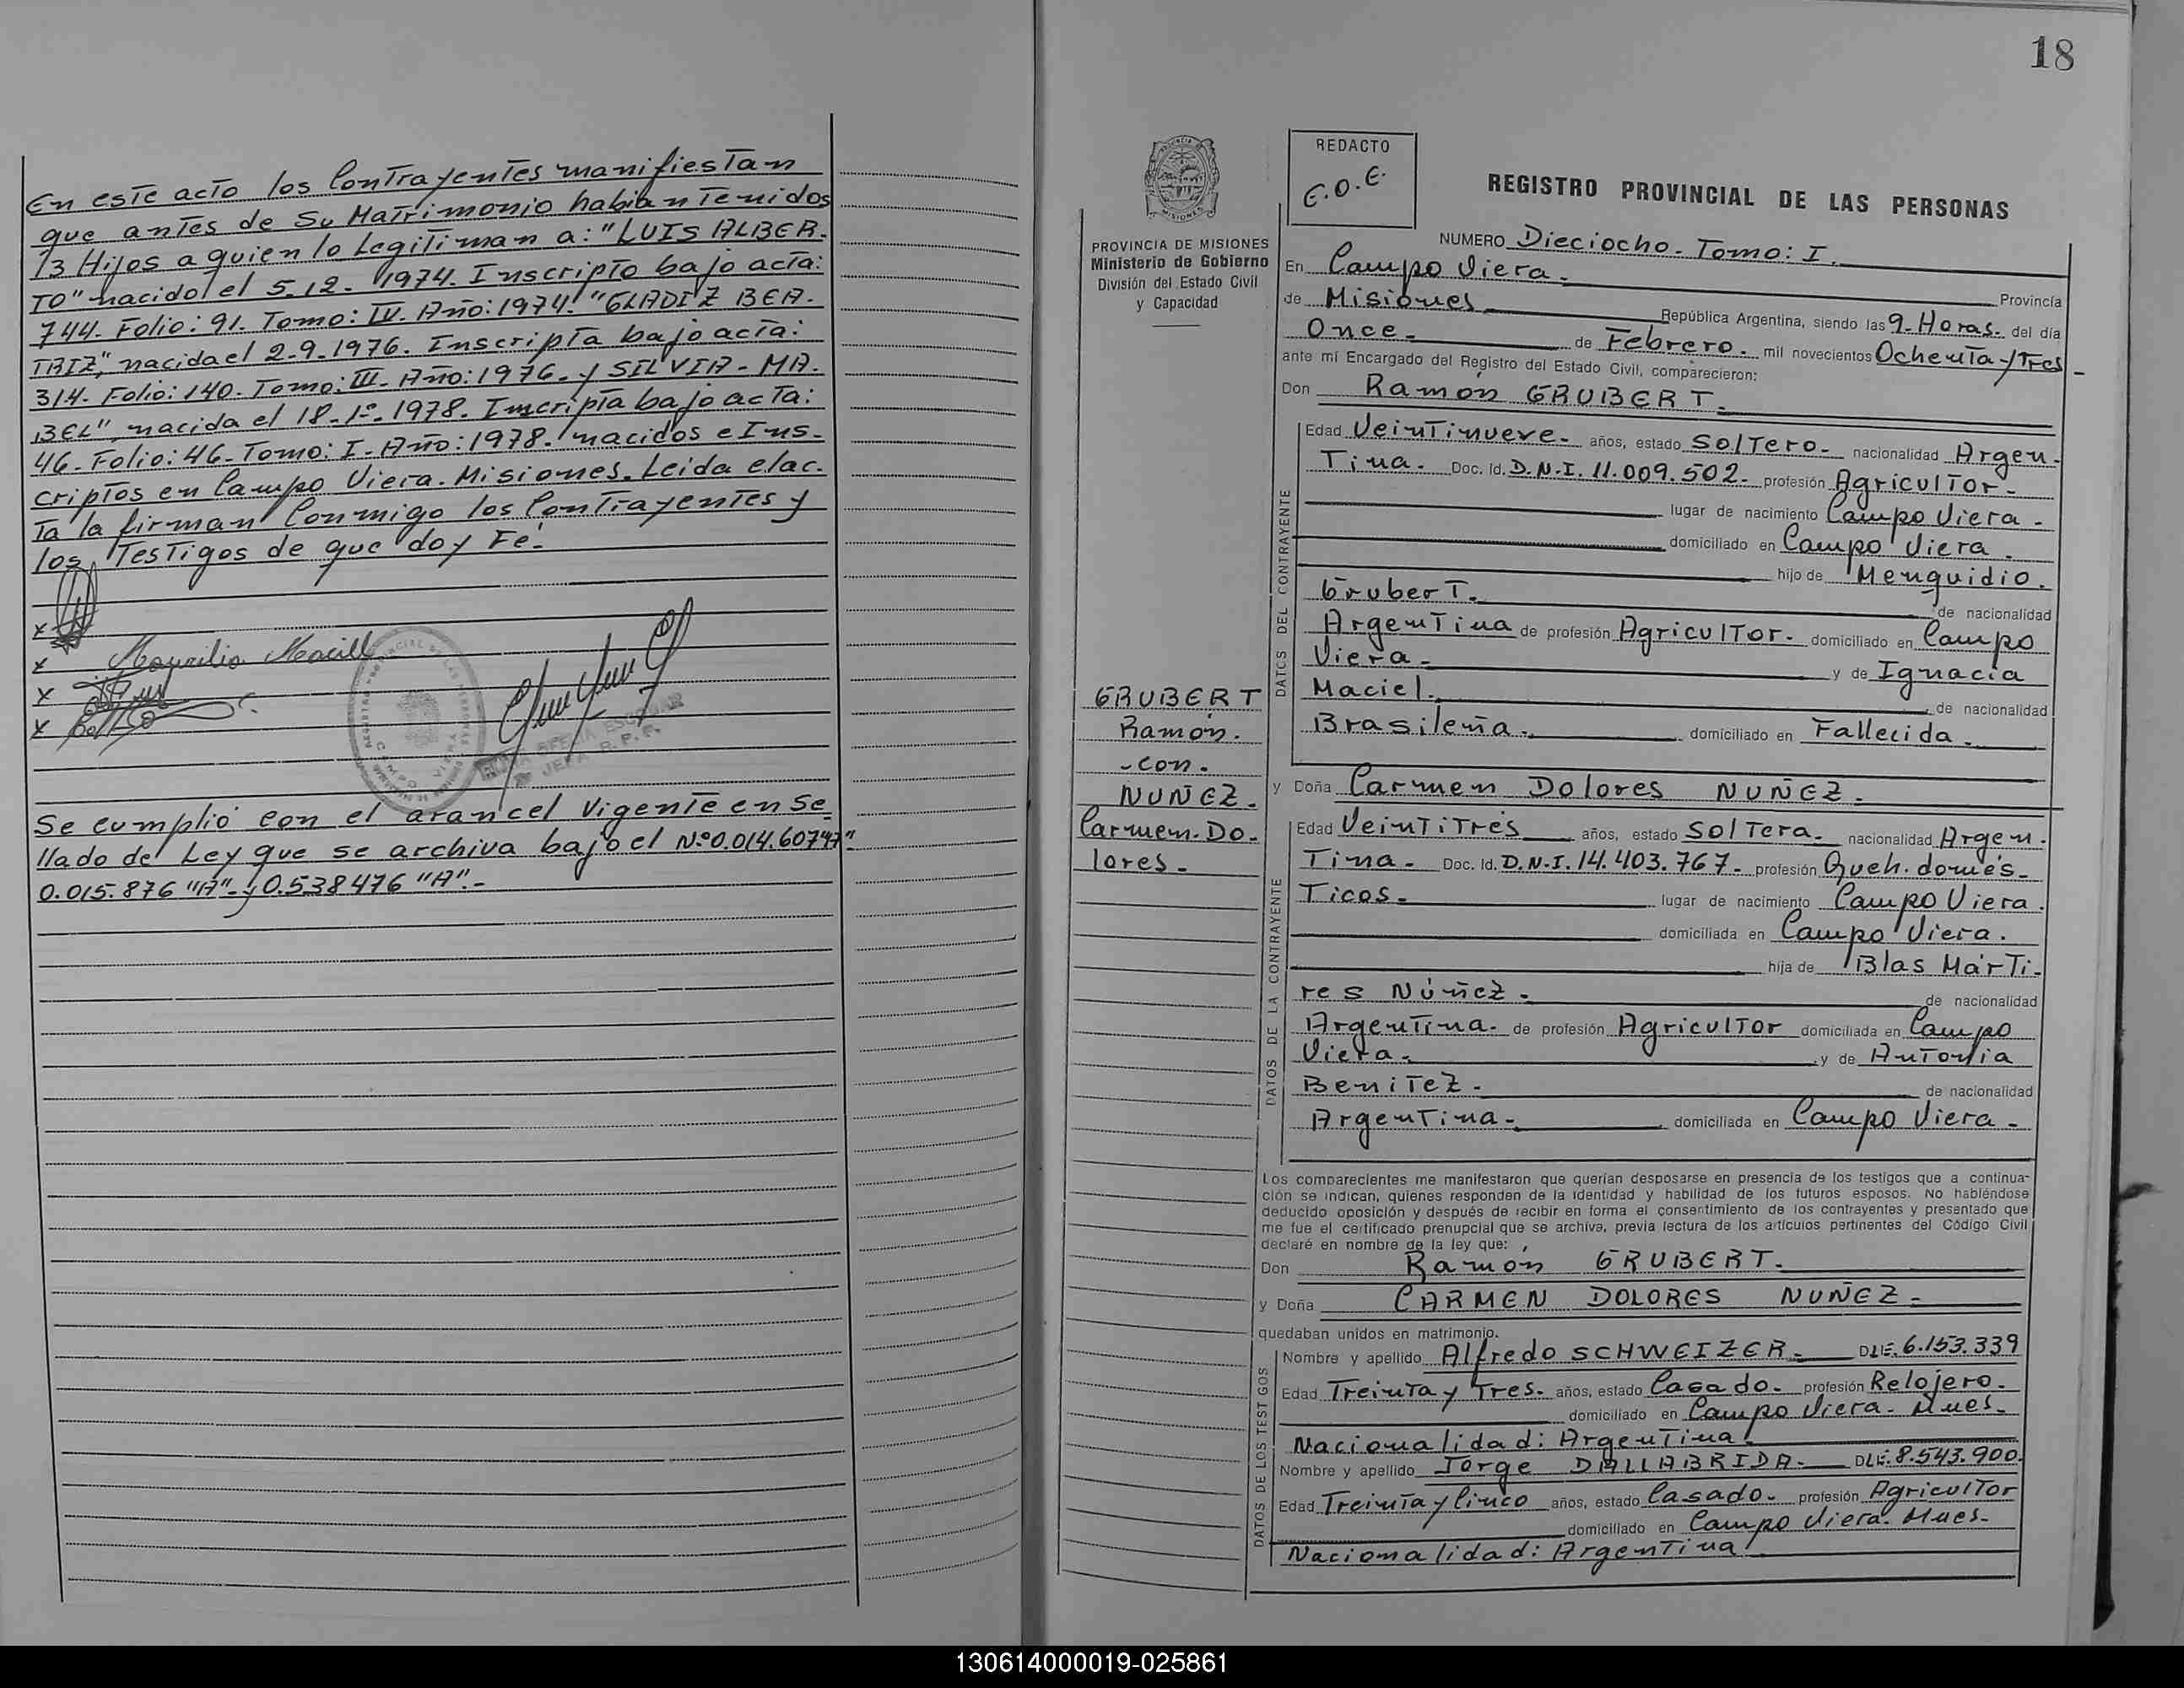 En este acto los Contrayentes manifiestan
que antes de Su Matrimonio habian Tenidos
3 Hijos a quien lo Legitiman a: "LUIS ALBER-
TO" nacido el 5.12. 1974. Inscripto bajo acta:
744. Folio: 91. Tomo: IV. Año: 1974. "GLADIZ BEA-
TRIZ", nacida el 2-9-1976. Inscripta bajo acta:
314. Folio: 140. Tomo: III. Año: 1976. y SILVIA-MA-
BEL", nacida el 18-1º-1978. Inscripta bajo acta:
46. Folio: 46. Tomo: I. Año: 1978. nacidos e Ins-
criptos en Campo Viera. Misiones. Leida el ac-
ta la firman Conmigo los Contrayentes y
los Testigos de que doy Fé.
x
x Maurilio Macill
x
x
JEFA R. P. P.
Se cumplió con el arancel Vigente en Se
llado de Ley que se archiva bajo el Nº 0.014.60747"
0.015.876 "A". y 0.538476 "A".-
18
PROVINCIA DE MISIONES
Ministerio de Gobierno
División del Estado Civil
y Capacidad
GRUBERT
Ramón.
-con.
NUÑEZ.
Carmen-Do-
lores.
REDACTO
E.O.E.
REGISTRO PROVINCIAL DE LAS PERSONAS
NUMERO Dieciocho. Tomo: I.
En Campo Viera. Provincia
de Misiones República Argentina, siendo las 9-Horas. del día
Once. de Febrero. mil novecientos Ochenta y Tres
ante mí Encargado del Registro del Estado Civil, comparecieron:
Don Ramón GRUBERT.
DATOS DEL CONTRAYENTE
Edad Veintinueve. años, estado Soltero. nacionalidad Argen-
Tina. Doc. Id. D.N.I. 11.009.502. profesión Agricultor.
lugar de nacimiento Campo Viera.
domiciliado en Campo Viera.
hijo de Menguidio.
Grubert. de nacionalidad
Argentina de profesión Agricultor. domiciliado en Campo
Viera. y de Ignacia
Maciel. de nacionalidad
Brasileña. domiciliado en Fallecida.
y Doña Carmen Dolores NUÑEZ.
DATOS DE LA CONTRAYENTE
Edad Veintitrés años, estado Soltera. nacionalidad Argen-
Tina. Doc. Id. D.N.I. 14.403.767. profesión Queh. domés-
Ticos. lugar de nacimiento Campo Viera.
domiciliada en Campo Viera.
hija de Blas Márti-
res Núñez. de nacionalidad
Argentina. de profesión Agricultor domiciliada en Campo
Viera. y de Antonia
Benitez. de nacionalidad
Argentina. domiciliada en Campo Viera.
Los comparecientes me manifestaron que querían desposarse en presencia de los testigos que a continua-
ción se indican, quienes responden de la identidad y habilidad de los futuros esposos. No habiéndose
deducido oposición y después de recibir en forma el consentimiento de los contrayentes y presentado que
me fue el certificado prenupcial que se archiva, previa lectura de los artículos pertinentes del Código Civil
declaré en nombre de la ley que:
Don Ramón GRUBERT.
y Doña CARMEN DOLORES NUÑEZ.
quedaban unidos en matrimonio.
DATOS DE LOS TESTIGOS
Nombre y apellido Alfredo SCHWEIZER. DLE. 6.153.339
Edad Treinta y Tres. años, estado Casado. profesión Relojero.
domiciliado en Campo Viera. Mnes.
Nacionalidad: Argentina
Nombre y apellido Jorge DALLABRIDA. DLE. 8.543.900
Edad Treinta y Cinco años, estado Casado. profesión Agricultor
domiciliado en Campo Viera. Mnes.
Nacionalidad: Argentina
130614000019-025861